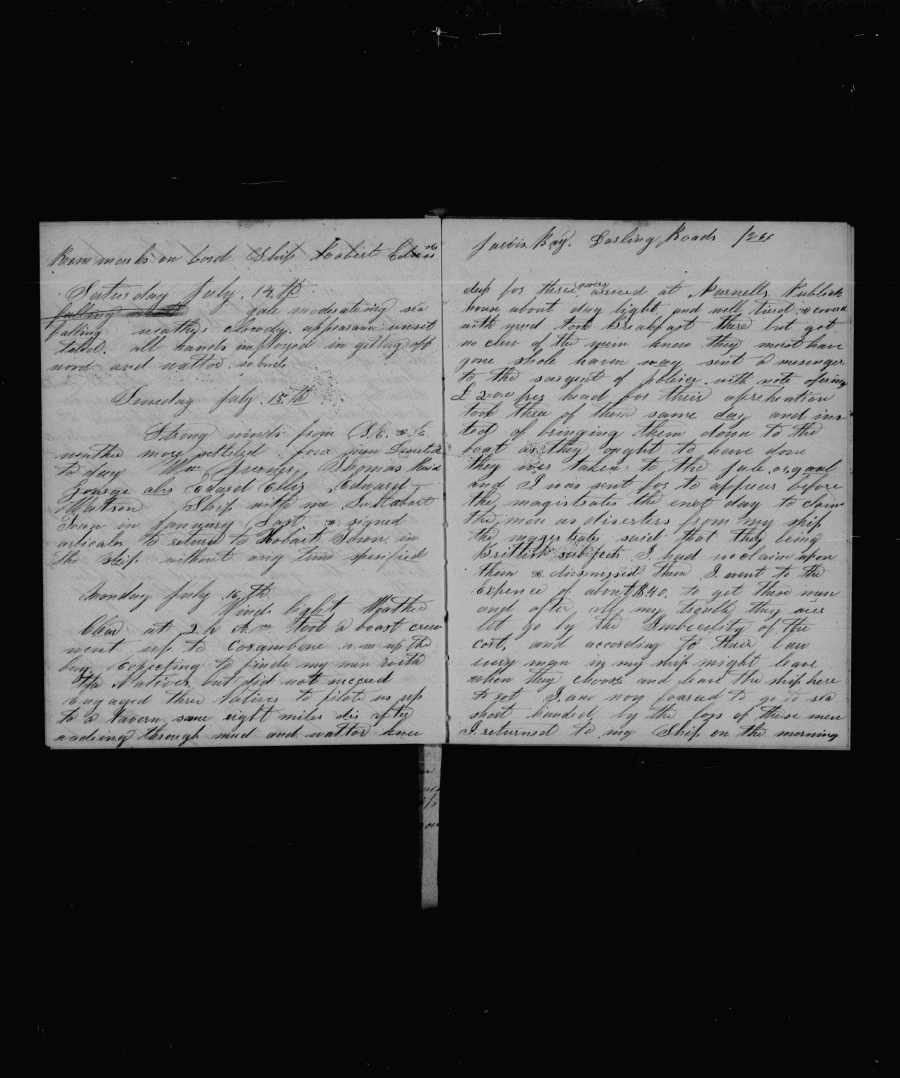 Remmarks on bord Ship Robert Edwards
Saturday July. 14th
falling gale moderateing sea
falling weather cloudy. appearance unsit
teled. all hands imployed in getting off
wood and wattor. so ends
Sunday July. 15th
Strong winds from S.E. & E.
weather more setteled. four men Deserted
to day Wm Turner, Thomas
George alis Edward Ellis, Edward
Watson Ship with me In Hobart
Tonge in January Last, & signed
articales to return to Hobart Town in
the ship without any time spesified
Monday July 16th
Winds light Weather
Clear at 2 h Am took a boast crew
went up to Corambene 10 m up the
bay Expecting to finde my men with
the Natives but did not succeed
Engaged three Natives to pilote us up
to a tavern some eight miles dis after
wadeing through mud and wattor knee
Jarvis Bay. Darling Roads 1860
deep for three ours arrived at Parnells Publick
house about day light, and well tired & coverd
with mud took Breakfast there but got
no clew of the men knew they must have
gone shole haven way sent a mesenger
to the sargent of police. with note ofering
£ 2=00 per head for their aprehention
took three of them same day and ins
ted of bringing them down to the
boat as they ought to have done
they were taken to the jale, or gaol
and I was sent for to appear before
the magistrate the next day to claim
the men as diserters from my ship
the magistrate said that they being
Brittish subjects I had no claim upon
them & dismissed them I went to the
Expence of about $40. to get these men
and after all my trouble they are
let go by the Imbecility of the
cort, and according to their law
every man in my ship might leave
when they choose and leave the ship here
to rot I am now foarsed to go to sea
short handed by the loss of these men
I returned to my Ship on the morning